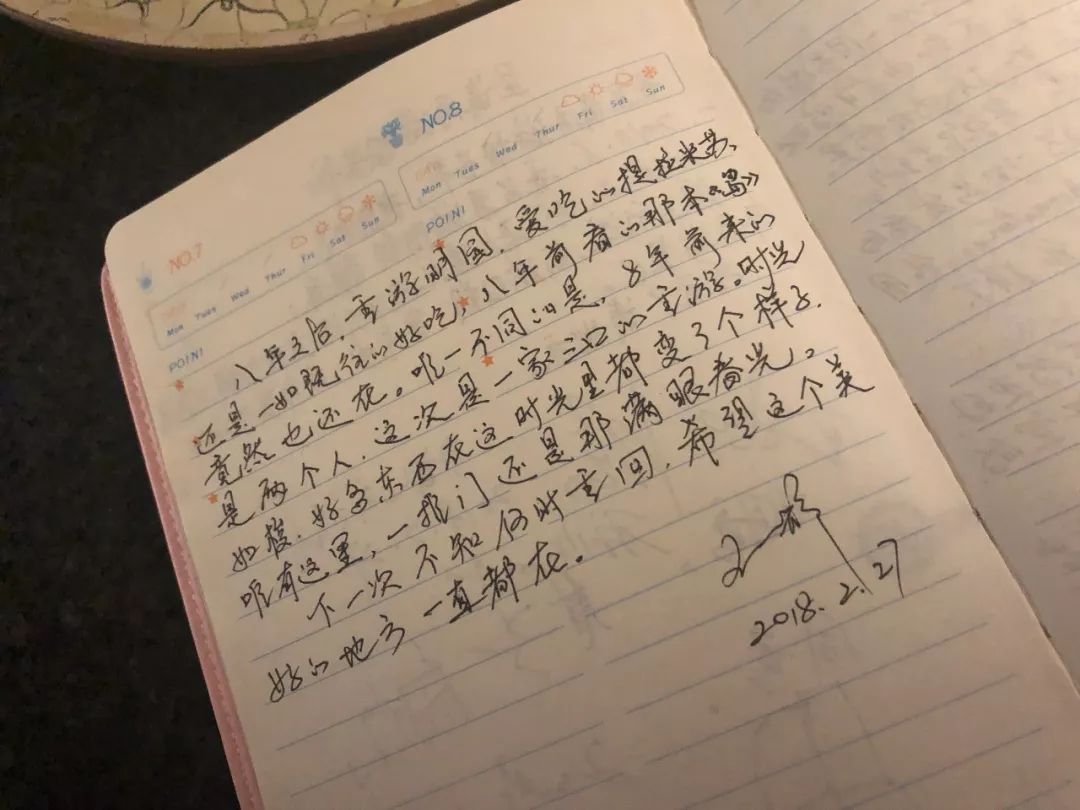 NO.7
Mon Tues Wed Thur Fri Sat Sun
POINT
NO.8
Mon Tues Wed Thur Fri Sat Sun
POINT
八年之后,重游明国,爱吃的提拉米苏,
还是一如既往的好吃,八年前看的那本《岛》
竟然也还在。唯一不同的是,8年前来的
是两个人,这次是一家三口的重游。时光
如梭,好多东西在这时光里都变了个样子,
唯有这里,一推门还是那满眼春光,。
下一次不知何时重回,希望这个美
好的地方一直都在。
2018.2.27